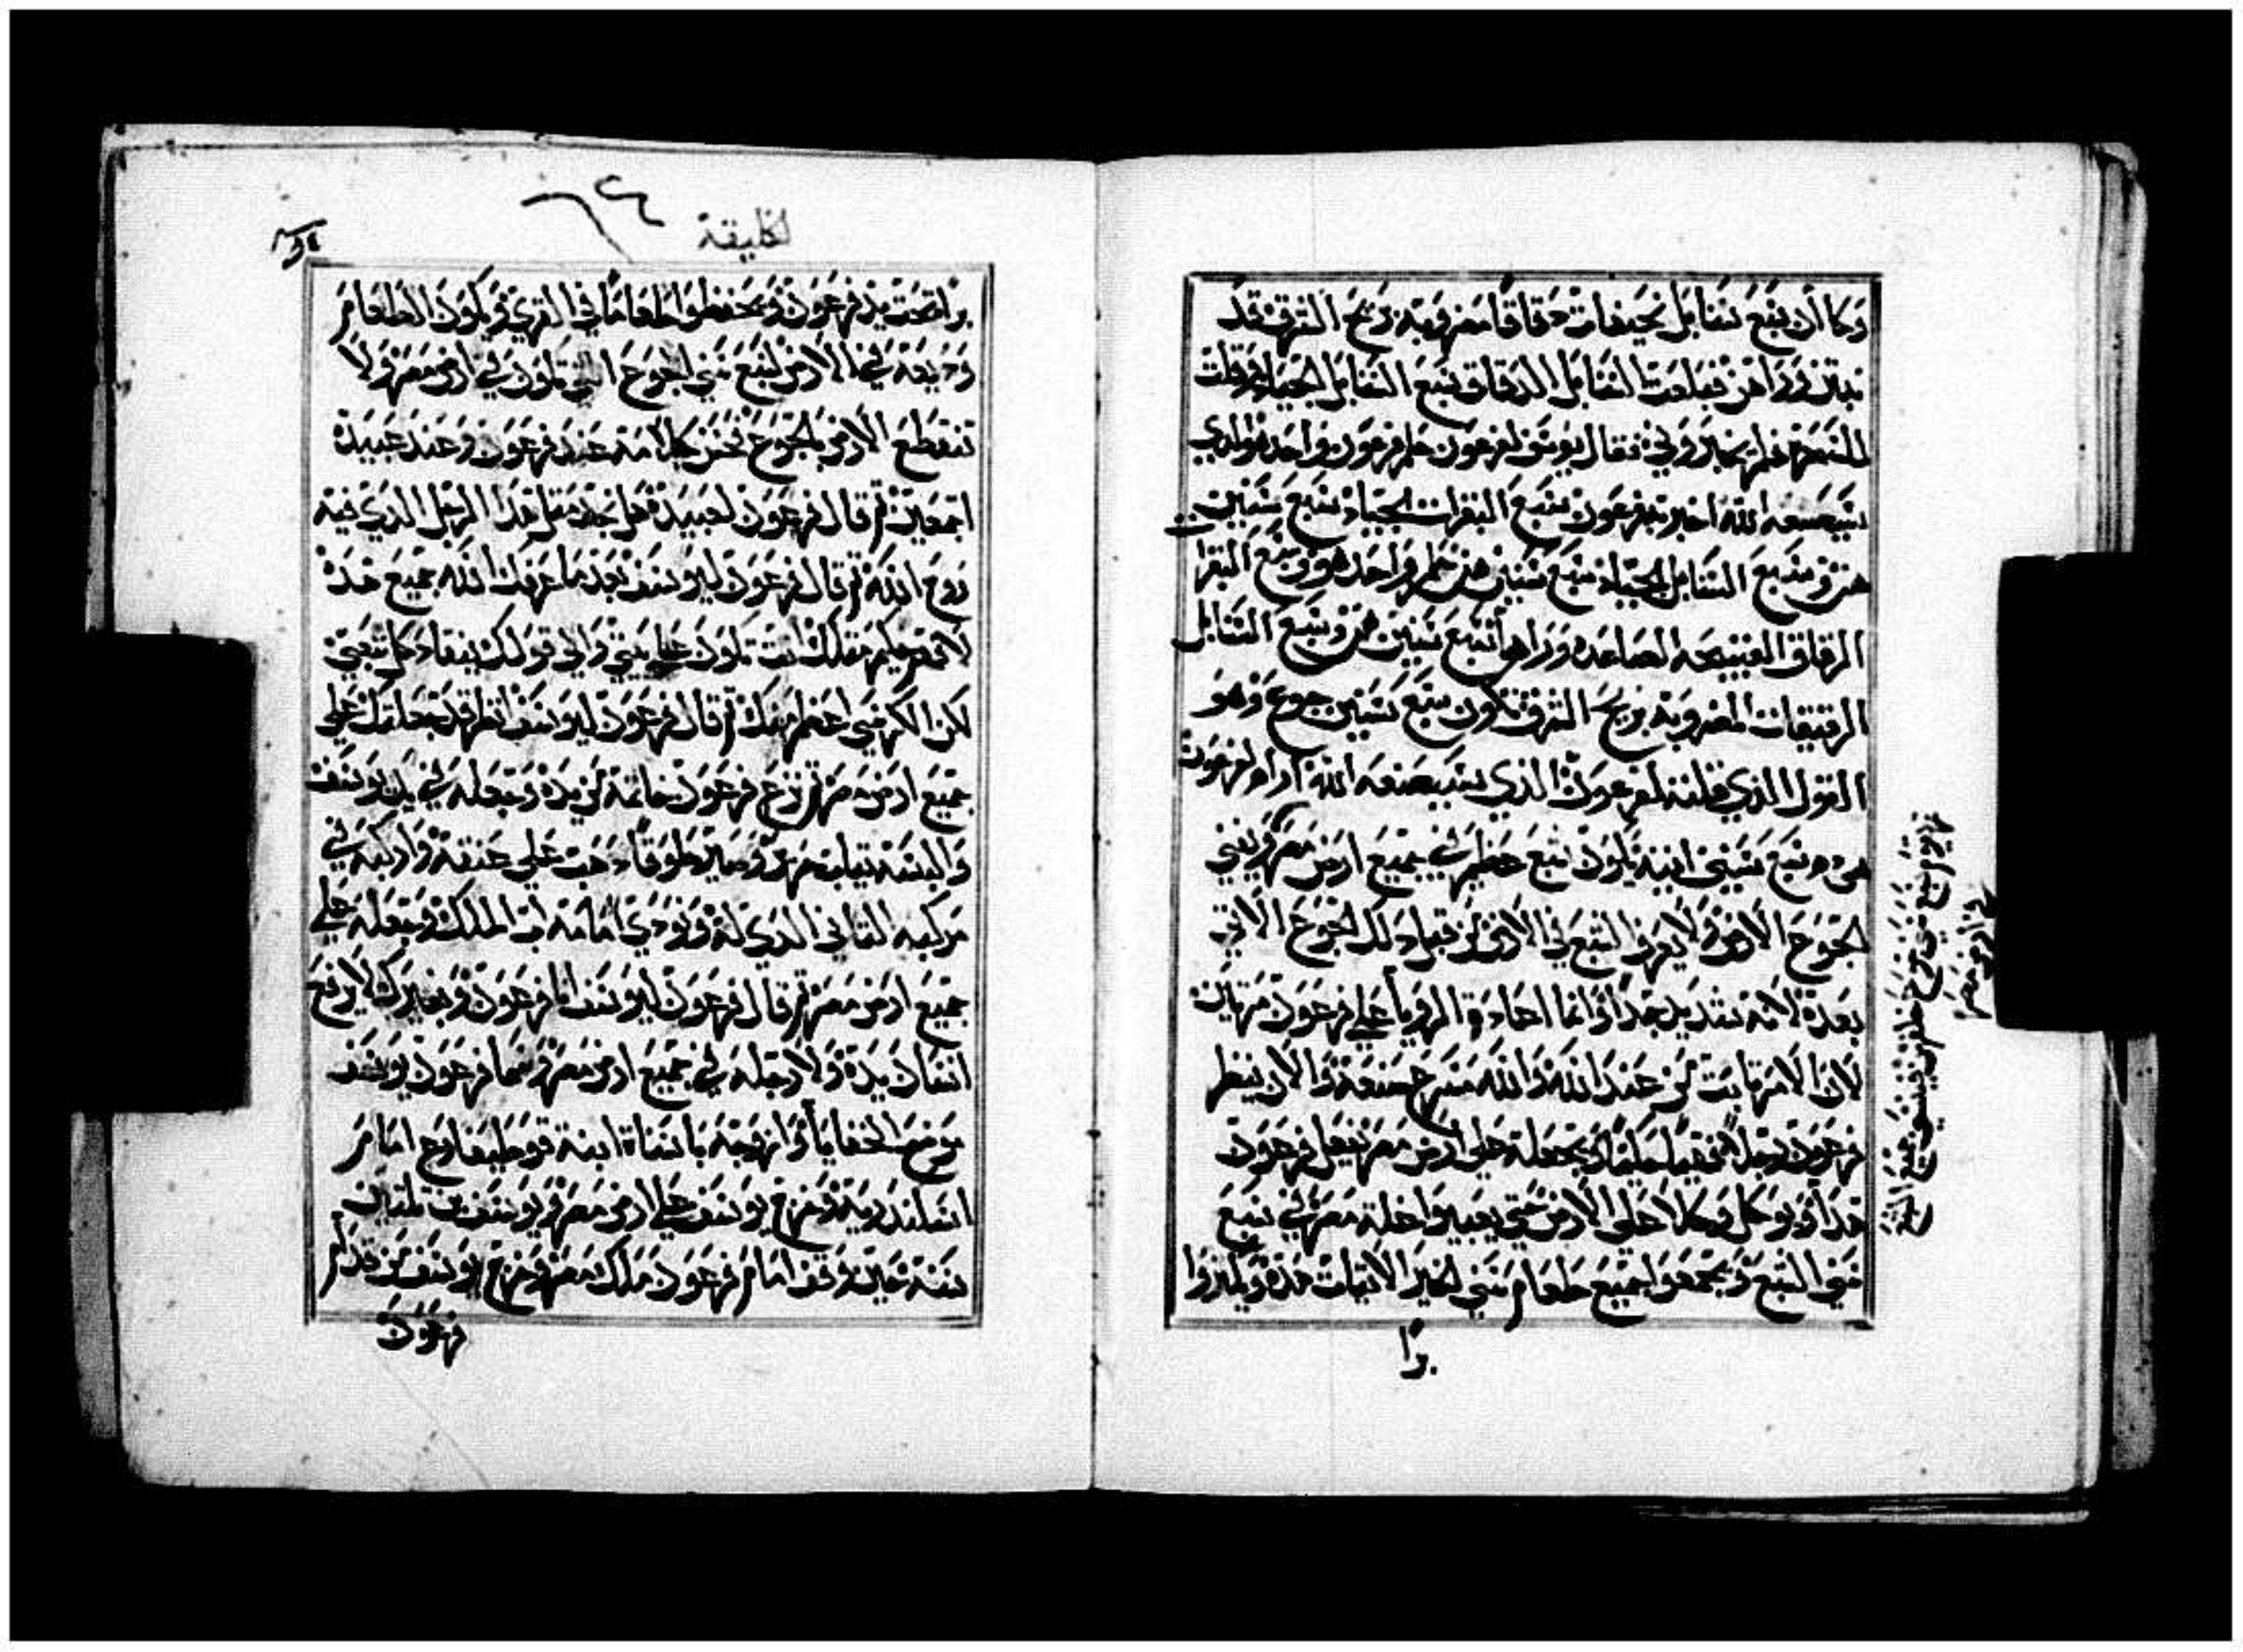 وكان سبع سنابل نحيفات دقاقا مضروبة بريح الشرق قد
نبتن وراهن فبلعت السنابل الدقاق سبع السنابل الجياد وقلت
للسحرة فلم يخبروني فقال يوسف لفرعون حلم فرعون واحد هو الذي
سيصنعه الله اخبر به فرعون سبع البقرات الجياد سبع سنين
هن وسبع السنابل الجياد سبع سنين هن حلم واحد هو وسبع البقرا
الرقاق القبيحه الصاعده وراهم سبع سنين هن وسبع السنابل
الرقيقات المضروبة بريح الشرق تكون سبع سنين جوع وهو
القول الذي قلته لفرعون الذي سيصنعه الله اراه لفرعون
سبع سنين اتية يكون شبع عظيم في جميع ارض مصر ويفني
الجوع الارض ولا يعرف الشبع في الارض من قبل ذلك الجوع الاتي
بعده لانه شديد جدا وانما اعادة الرويا علي فرعون مرتين
لان الامر ثابت من عند الله والله مسرع صنعه والان ينظر
فرعون رجلا فهيما حكيما ويجعله علي ارض مصر يفعل فرعون
هذا ويوكل وكلا علي الارض حتي يعبو اغلة مصر في سبع
سني الشبع ويجمعوا جميع طعام سني الخير الاتيات هذه ويخزنوا
برا
ارض مصر
الخليقة
٦٤
برا تحت يد فرعون ويحفظوا طعاما في القري ويكون الطعام
وديعة في الارض لسبع سني الجوع التي تكون في ارض مصر ولا
تنقطع الارض بالجوع فحسن كلامه عند فرعون وعند عبيده
اجمعين ثم قال فرعون لعبيده هل نجد مثل هذا الرجل الذي فيه
روح الله ثم قال فرعون ليوسف بعد ما عرفك الله جميع هذه
لا فهم حكيم مثلك انت تكون علي بيتي والي قولك ينقاد كل شعبي
لكن الكرسي اعظم منك ثم قال فرعون ليوسف انظر قد جعلتك علي
جميع ارض مصر ثم نزع فرعون خاتمه من يده وجعله في يد يوسف
والبسه ثياب حرير وصير طوقا ذهب علي عنقه واركبه في
مركبه الثاني الذي له ونودي امامه اب الملك وجعله علي
جميع ارض مصر ثم قال فرعون ليوسف انا فرعون وبغيرك لا يرفع
انسان يده ولا رجله في جميع ارض مصر وسما فرعون يوسف
موضح الخفايا وازوجه باسناة ابنة فوطيفارع امام
اسكندرية وخرج يوسف علي ارض مصر ويوسف بن ثلثين
سنة حين وقف امام فرعون ملك مصر وخرج يوسف من قدام
فرعون